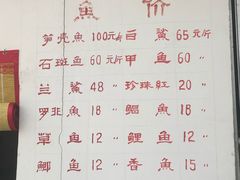 鱼 价
笋壳魚 100元/斤 白鯊 65元/斤
石斑鱼 60〃 甲鱼 60〃
兰鯊 48〃 珍珠紅 20〃
罗非魚 18〃 鯧魚 18〃
草鱼 12〃 鲤鱼 12〃
鲫鱼 12〃 香魚 15〃